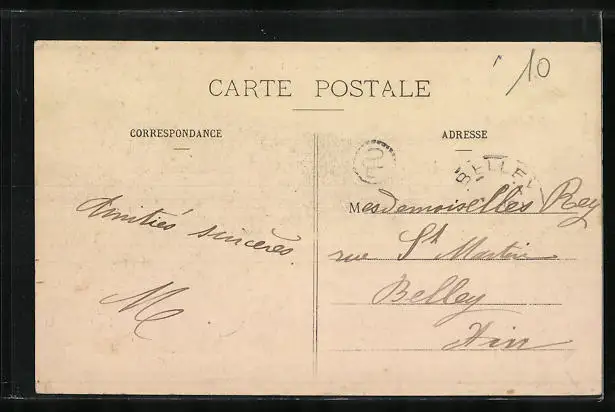 10
CARTE POSTALE
CORRESPONDANCE
ADRESSE
BELLEY
Amitiés sincères
M
Mesdemoiselles Rey
rue St Martin
Belley
Ain